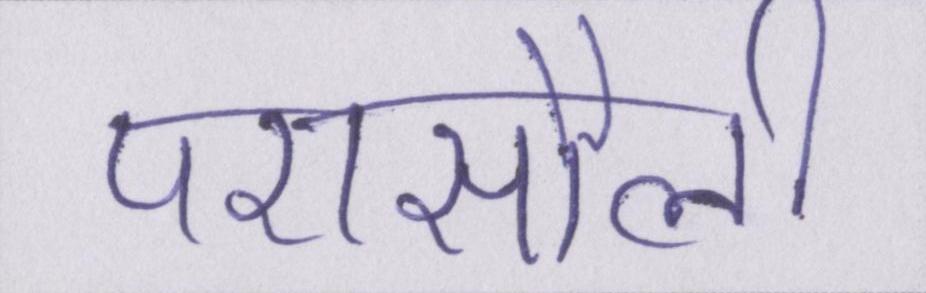 परासौली